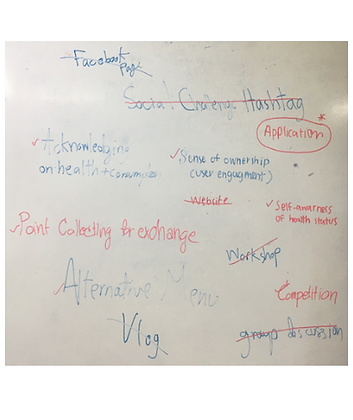 Facebook
Page
Social Challenge Hashtag
*
Application
Acknowledging
on health +
Sense of ownership
(user engagment)
Website
Self-awarness
of health status
Point Collecting for exchange
Workshop
Alternative Menu
Competition
Vlog
group discussion